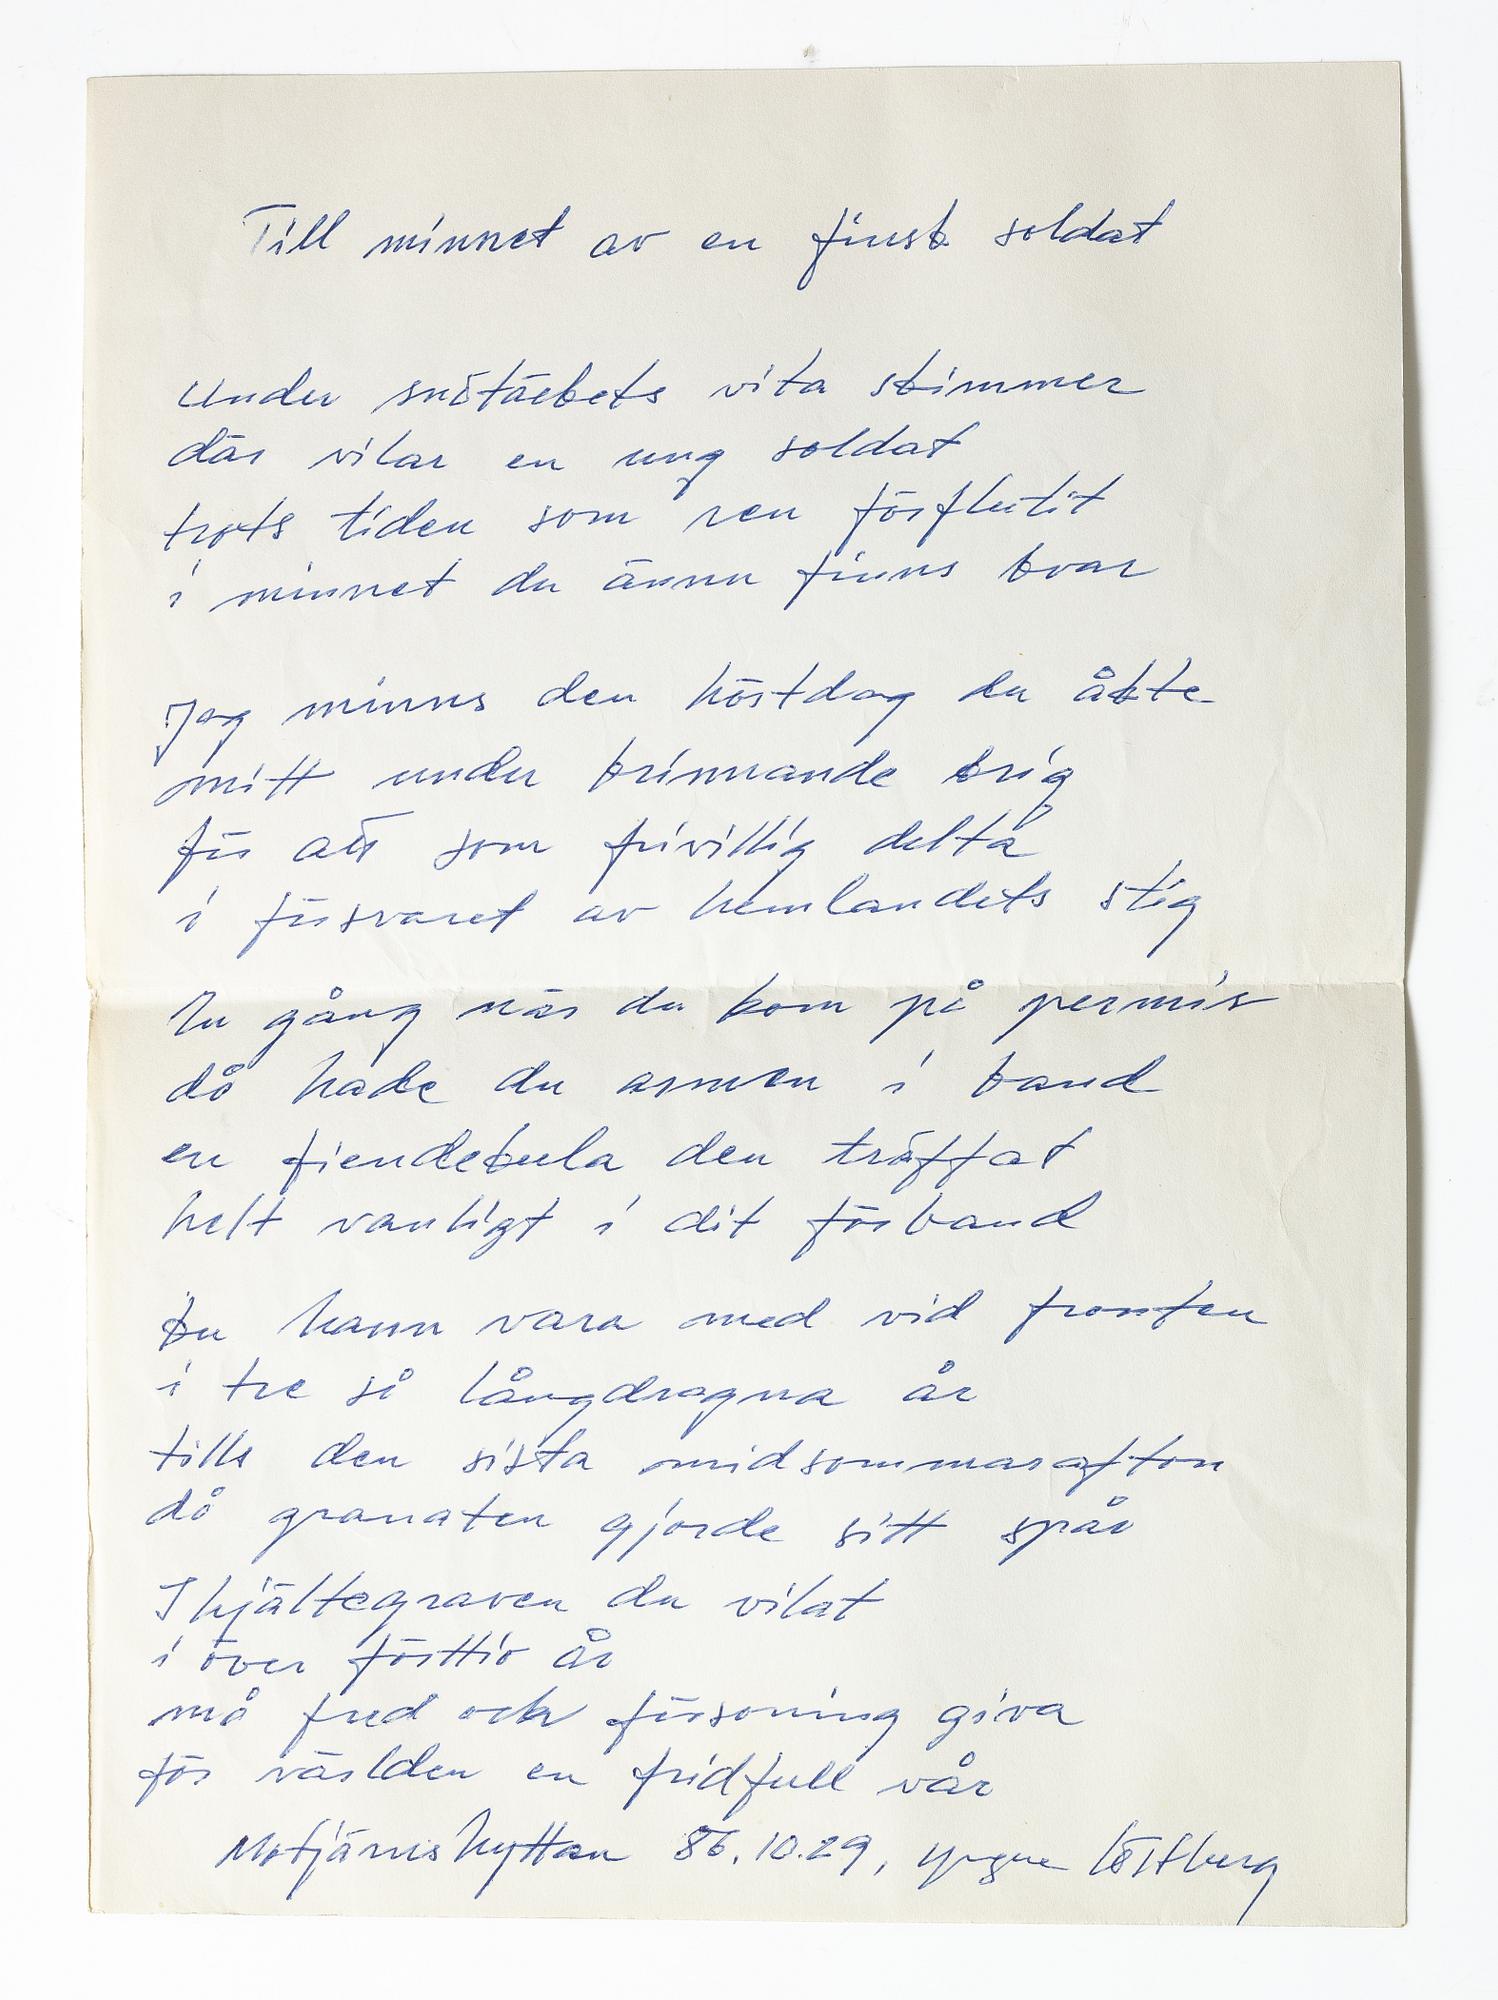 Till minnet av en finsk soldat
Under snötäckets vita skimmer
där vilar en ung soldat
trots tiden som ren förflutit
i minnet du ännu finns kvar
Jag minns den höstdag du åkte
mitt under brinnande krig
för att som frivillig delta
i försvaret av hemlandets stig
En gång när du kom på permis
då hade du armen i band
en fiendekula den träffat
helt vanligt i dit förband
Du hann vara med vid fronten
i tre så långdragna år
tills den sista midsommarafton
då granaten gjorde sitt spår
I hjältegraven du vilat
i över förttio år
må fred och försoning giva
för världen en fridfull vår
Motjärnshyttan 86.10.29, Yngve Löfberg